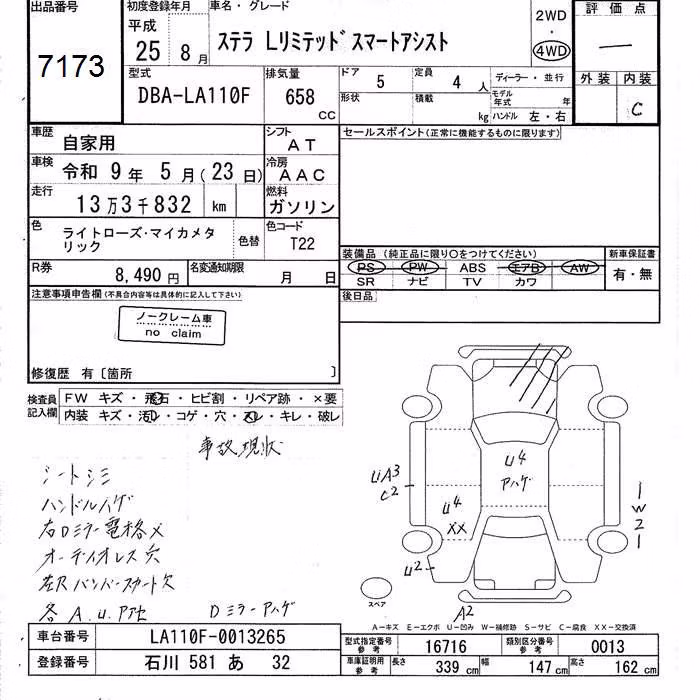 出品番号
7173
初度登録年月
平成
25 8 月
車名・グレード
ステラ Lリミテッド スマートアシスト
2WD
・
4WD
評価点
一
外装 内装
C
型式
DBA-LA110F
排気量
658
CC
ドア
5
定員
4 人
形状
積載
kg
ディーラー・並行
モデル
年式 年
ハンドル 左・右
車歴
自家用
シフト
AT
セールスポイント(正常に機能するものに限ります)
車検
令和 9 年 5 月(23 日)
冷房
AAC
走行
13 万 3 千 832 km
燃料
ガソリン
色
ライトローズ・マイカメタ
リック
色替
色コード
T22
装備品(純正品に限り○をつけてください)
新車保証書
PS PW ABS エアB AW
SR ナビ TV カワ
有・無
R券
8,490 円
名変通知期限
月 日
後日品
注意事項申告欄(不具合内容等は具体的に記入して下さい)
ノークレーム車
no claim
修復歴 有〔箇所 〕
検査員
記入欄
FW キズ・飛石・ヒビ割・リペア跡・×要
内装 キズ・汚れ・コゲ・穴・スレ・キレ・破レ
事故現状
シートシミ
ハンドルハゲ
右Dミラー電格×
オーディオレス穴
左Rバンパースカート欠
各A.U.アハゲ
Dミラーアハゲ
U4
アハゲ
UA3
C2
U4
XX
U2
W2
A2
スペア
A－キズ E－エクボ U－凹み W－補修跡 S－サビ C－腐食 XX－交換済
車台番号
LA110F-0013265
登録番号
石川 581 あ 32
型式指定番号
参考
16716
類別区分番号
参考
0013
車庫証明用
参考
長さ
339 cm
幅
147 cm
高さ
162 cm